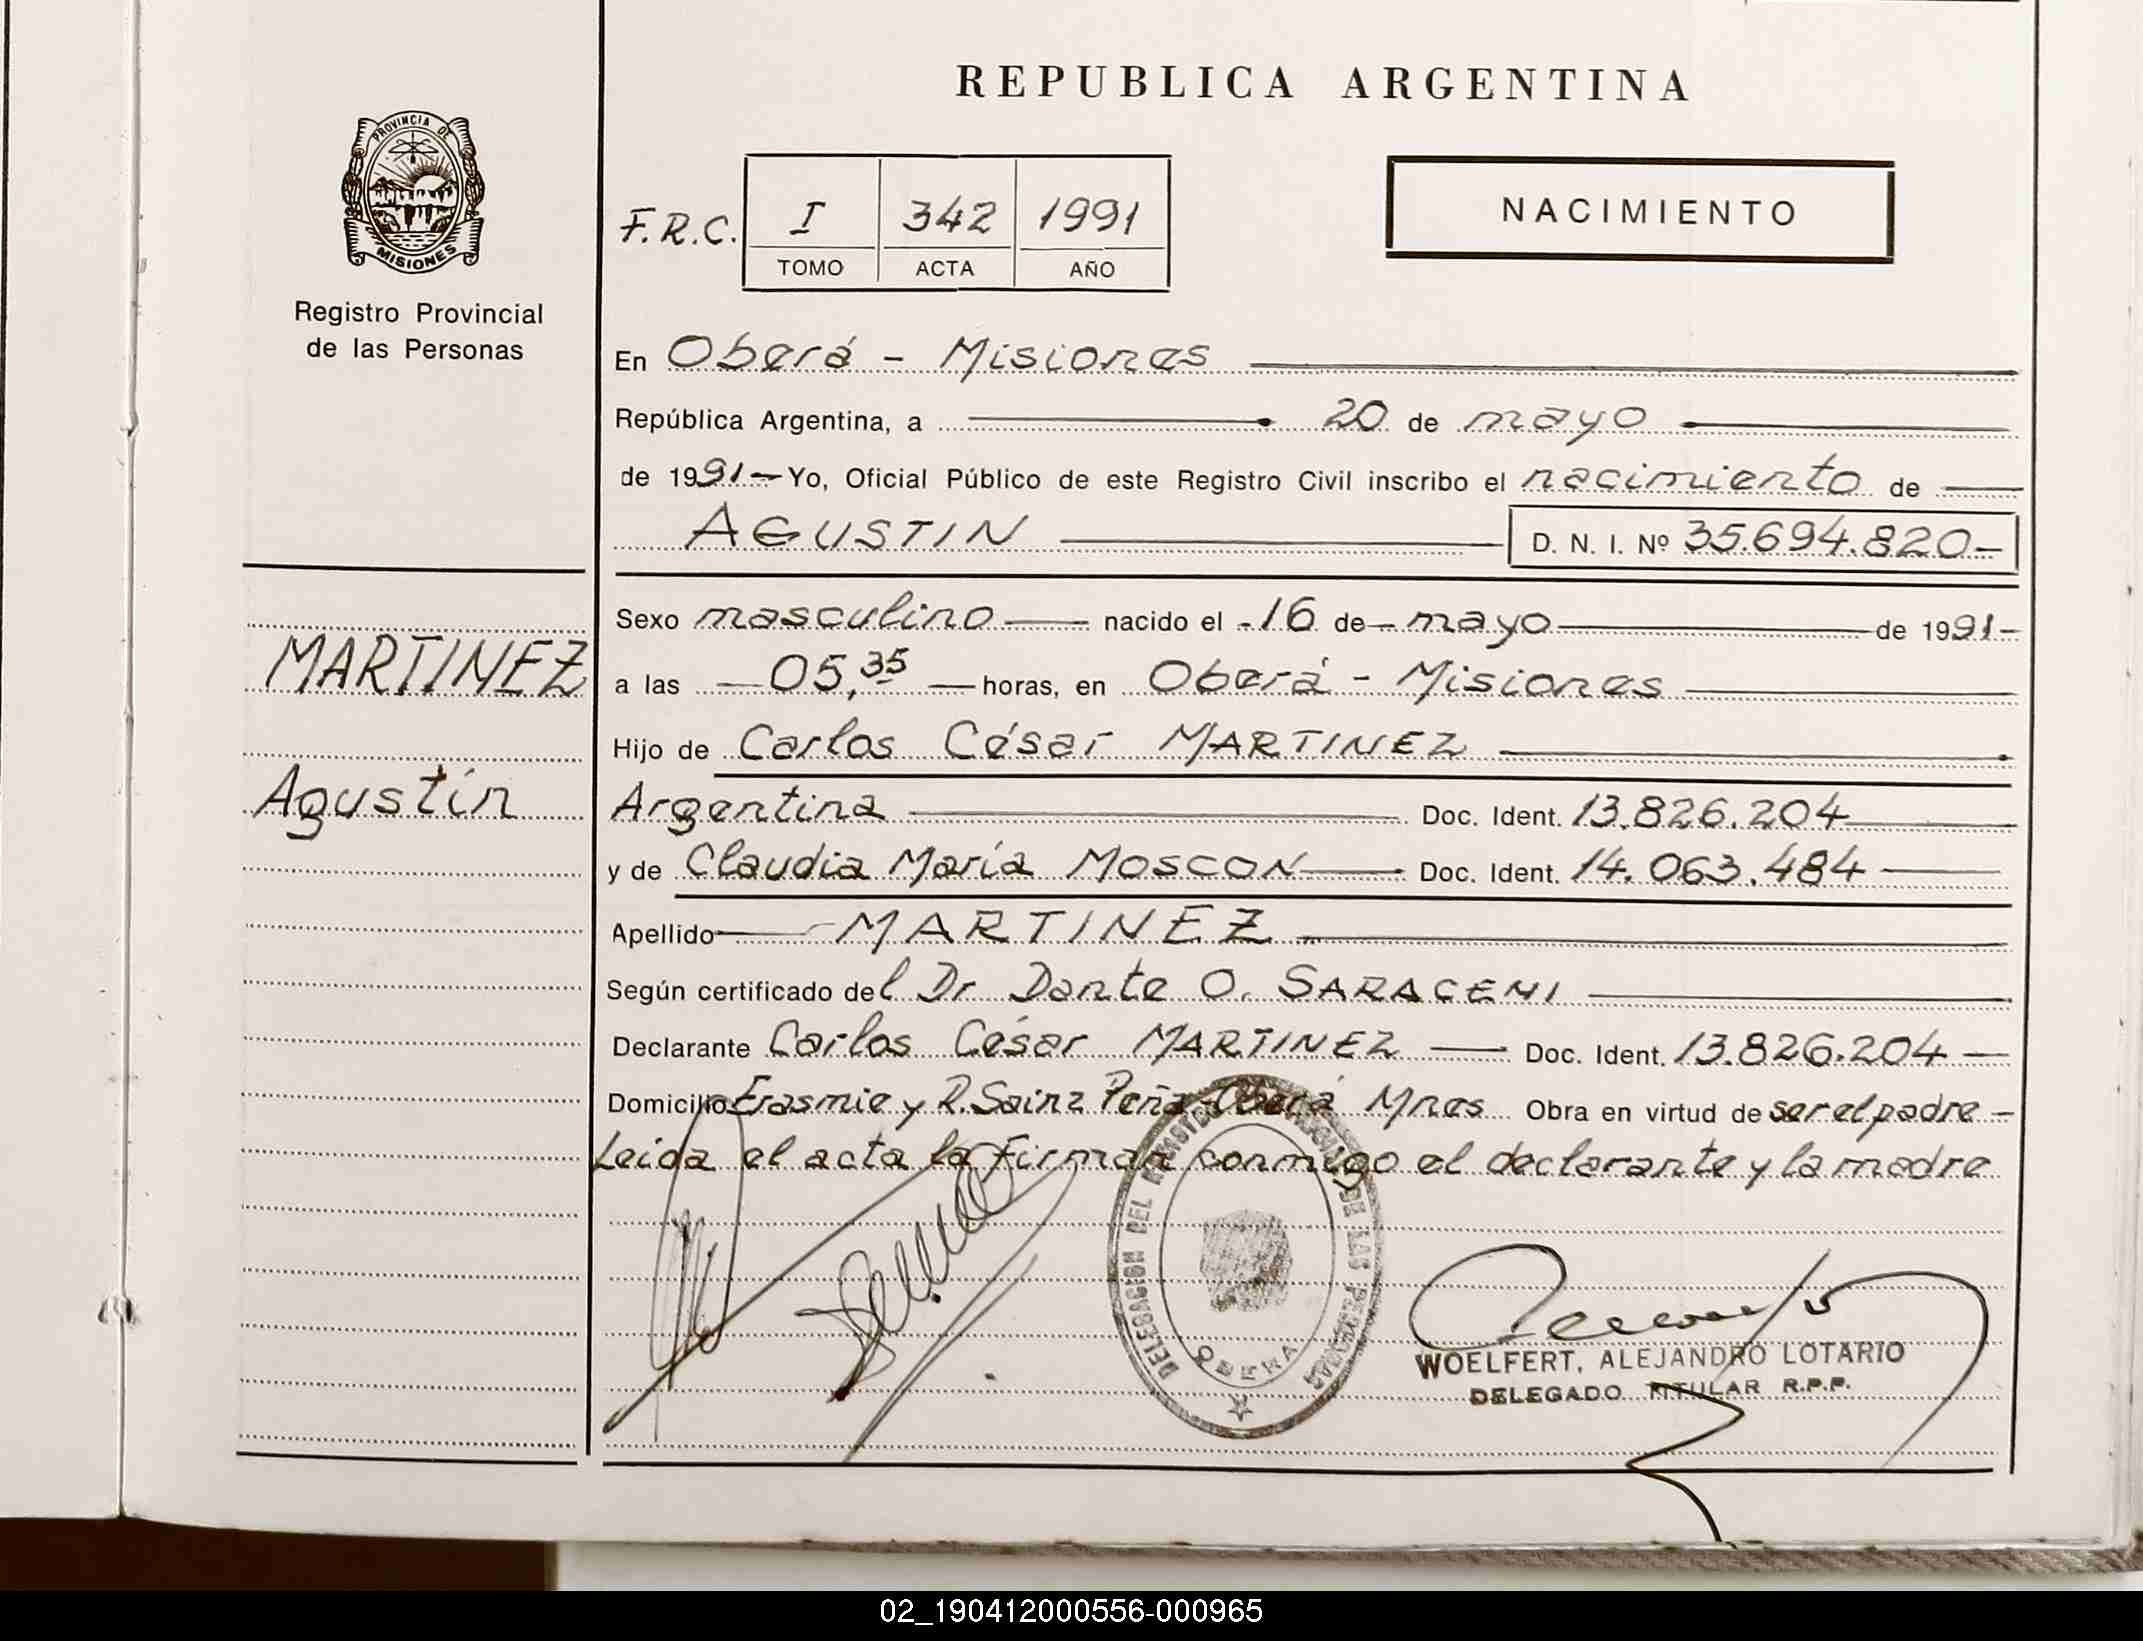 REPUBLICA ARGENTINA
PROVINCIA DE
MISIONES
Registro Provincial
de las Personas
F.R.C. I 342 1991
TOMO ACTA AÑO
NACIMIENTO
En Oberá - Misiones
República Argentina, a 20 de mayo
de 1991 - Yo, Oficial Público de este Registro Civil inscribo el nacimiento de
AGUSTIN D. N. I. Nº 35.694.820-
MARTINEZ
Agustín
Sexo masculino nacido el -16 de mayo de 1991-
a las 05,35 horas, en Oberá - Misiones
Hijo de Carlos César MARTINEZ
Argentina Doc. Ident. 13.826.204
y de Claudia María MOSCON Doc. Ident. 14.063.484
Apellido MARTINEZ
Según certificado del Dr Dante O. SARACENI
Declarante Carlos César MARTINEZ Doc. Ident. 13.826.204
Domicilio Erasmie y R. Sainz Peña - Oberá Mnes Obra en virtud de ser el padre -
Leída el acta la firman conmigo el declarante y la madre
DELEGACION DEL REGISTRO PROVINCIAL DE LAS PERSONAS
OBERA
WOELFERT, ALEJANDRO LOTARIO
DELEGADO TITULAR R.P.P.
02_190412000556-000965